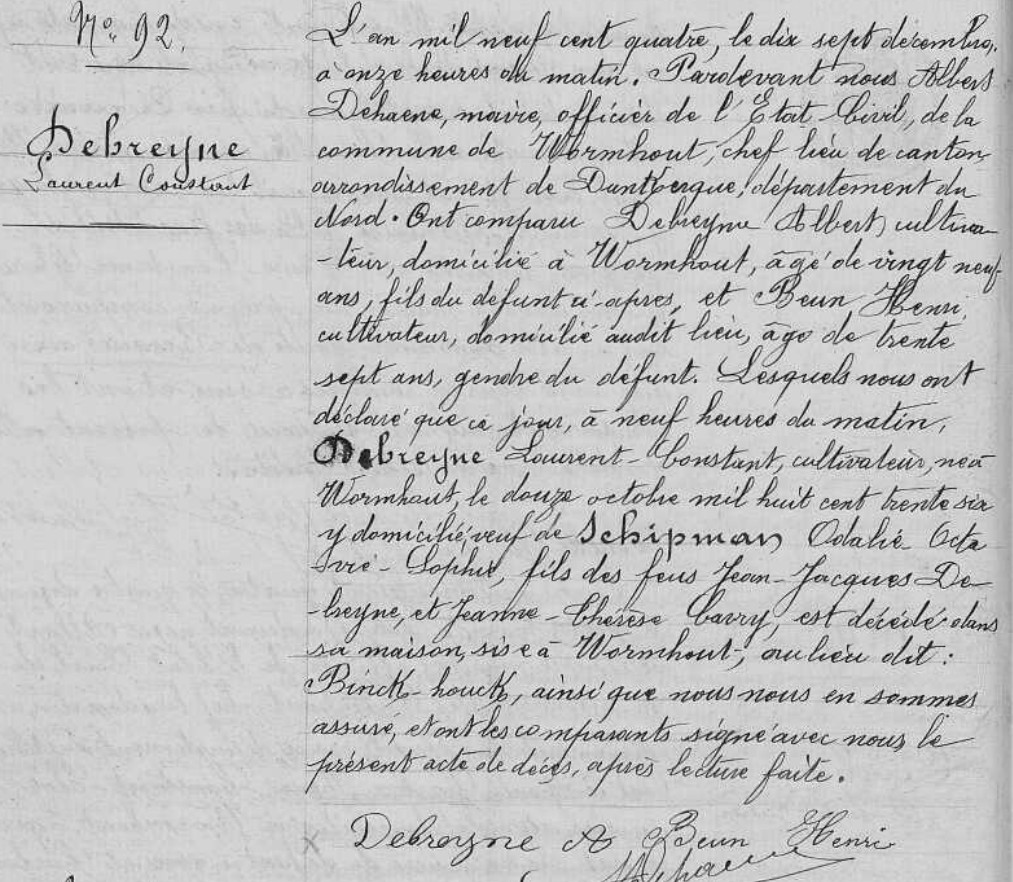 No. 92.
Debreyne
Laurent Constant
L'an mil neuf cent quatre, le dix sept décembre,
à onze heures du matin. Pardevant nous Albert
Dehaene, maire, officier de l'Etat-Civil, de la
commune de Wormhout, chef lieu de canton,
arrondissement de Dunkerque, département du
Nord. Ont comparu Debreyne Albert, cultiva-
-teur, domicilié à Wormhout, âgé de vingt neuf
ans, fils du défunt ci-après, et Beun Henri,
cultivateur, domicilié audit lieu, âgé de trente
sept ans, gendre du défunt. Lesquels nous ont
déclaré que ce jour, à neuf heures du matin,
Debreyne Laurent-Constant, cultivateur, né à
Wormhout, le douze octobre mil huit cent trente six
y domicilié, veuf de Schipman Odalie-Octa
vie-Sophie, fils des feus Jean-Jacques De-
breyne, et Jeanne-Thérèse Cavry, est décédé dans
sa maison, sise à Wormhout, au lieu dit:
Binck-houck, ainsi que nous nous en sommes
assuré, et ont les comparants signé avec nous le
présent acte de décès, après lecture faite.
Debreyne A Beun Henri
ADehaene